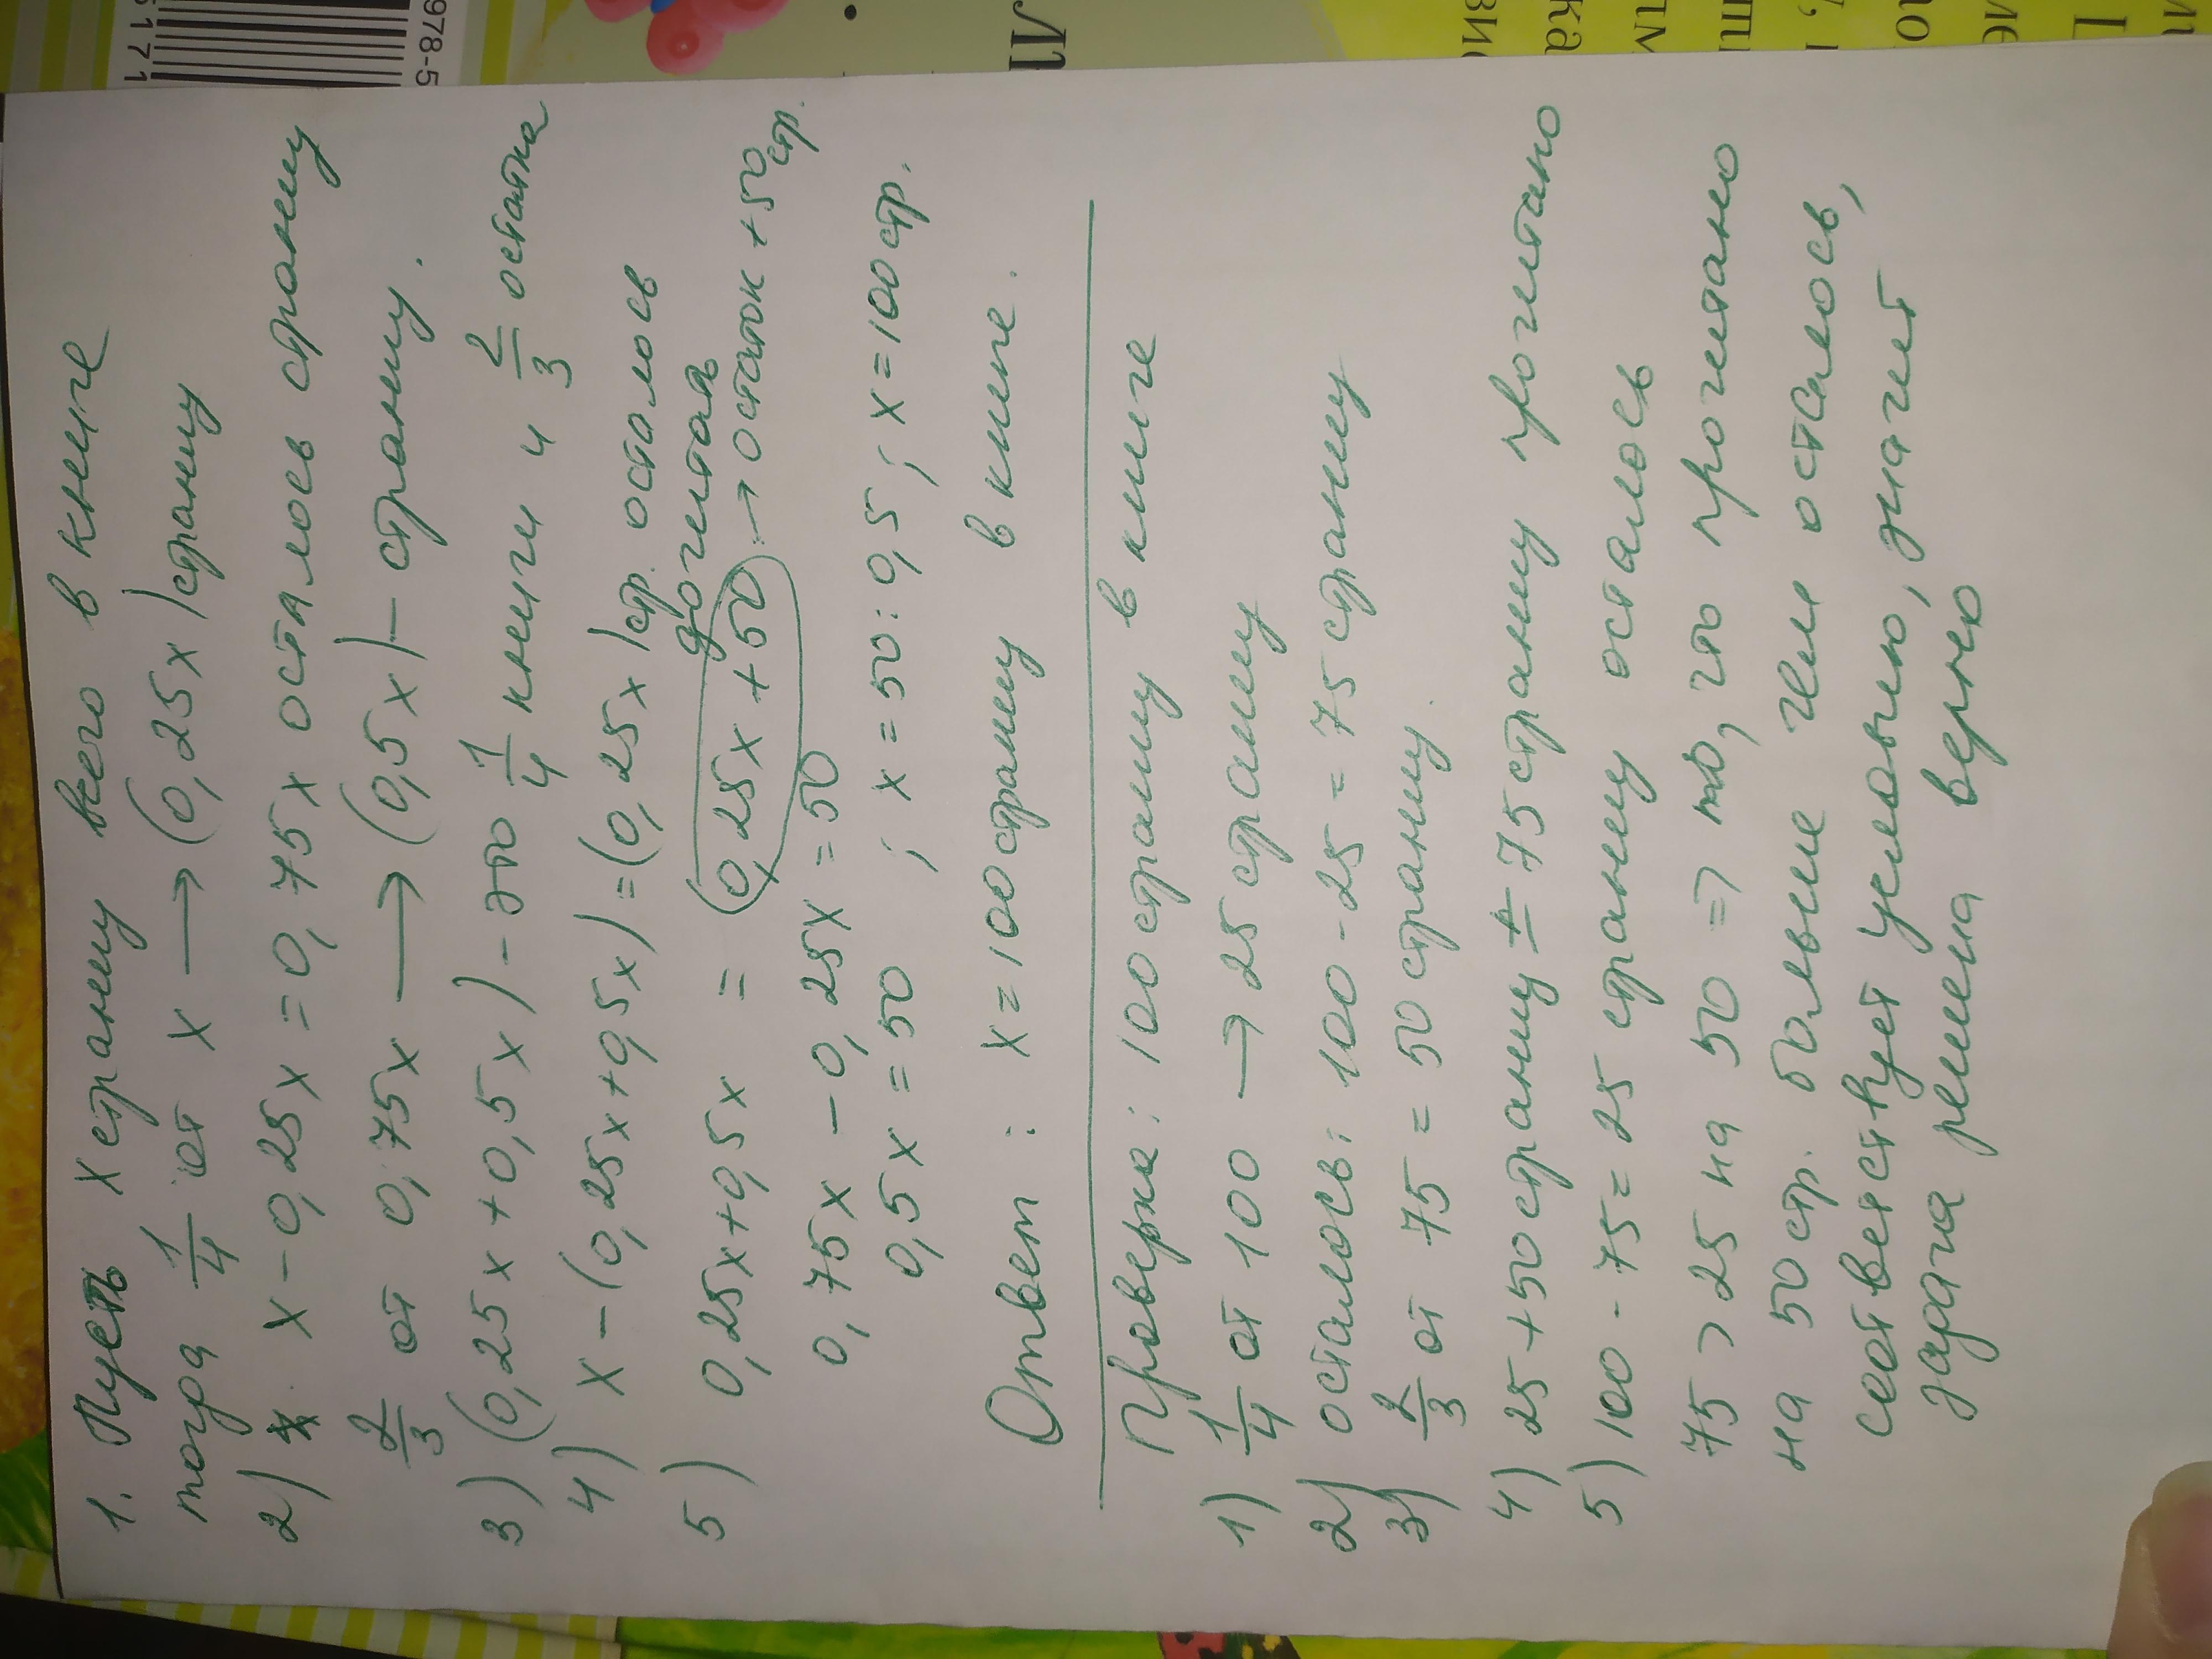 1. Пусть x страниц всего в книге
тогда 1/4 от x → (0,25x) страниц
2) x - 0,25x = 0,75x осталось страниц
2/3 от 0,75x → (0,5x) - страниц.
3) (0,25x + 0,5x) - это 1/4 книги и 2/3 остатка
4) x - (0,25x + 0,5x) = (0,25x) стр. осталось
дочитать
5) 0,25x + 0,5x = (0,25x + 50) → остаток + 50 стр.
0,75x - 0,25x = 50
0,5x = 50 ; x = 50 : 0,5 ; x = 100 стр.
Ответ : x = 100 страниц в книге.
Проверка : 100 страниц в книге
1) 1/4 от 100 → 25 страниц
2) осталось: 100 - 25 = 75 страниц
3) 2/3 от 75 = 50 страниц.
4) 25 + 50 страниц = 75 страниц прочитано
5) 100 - 75 = 25 страниц осталось
75 > 25 на 50 => то, что прочитано
на 50 стр. больше чем осталось,
соответствует условию, значит
задача решена верно
978-5
6171
Л